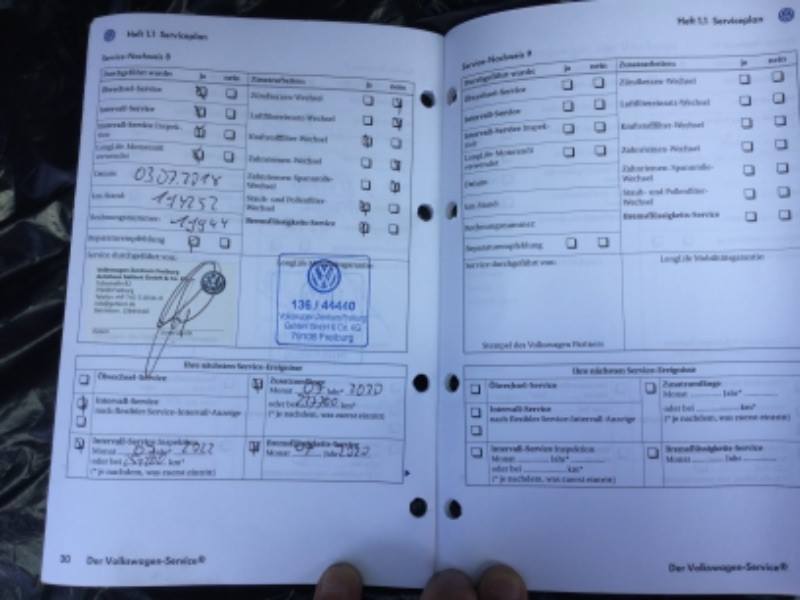 Heft 1.1 Serviceplan
Service-Nachweis 8
Durchgeführt wurde: ja nein
Ölwechsel-Service
Intervall-Service
Intervall-Service Inspek-
tion
LongLife-Motorenöl
verwendet
Datum: 03.07.2018
km-Stand:
Rechnungsnummer:
Reparaturempfehlung
Zusatzarbeiten: ja nein
Zündkerzen-Wechsel
Luftfiltereinsatz-Wechsel
Kraftstofffilter-Wechsel
Zahnriemen-Wechsel
Zahnriemen-Spannrolle-
Wechsel
Staub- und Pollenfilter-
Wechsel
Bremsflüssigkeits-Service
Service durchgeführt von:
Volkswagen Zentrum Freiburg
LongLife Mobilitätsgarantie
136 / 44440
Volkswagen Zentrum Freiburg
GmbH & Co. KG
Freiburg
Ihre nächsten Service-Ereignisse
Ölwechsel-Service
Intervall-Service
nach flexibler Service-Intervall-Anzeige
Intervall-Service Inspektion
Monat 07 Jahr* 2022
oder bei km*
(* je nachdem, was zuerst eintritt)
Zusatzumfänge
Monat 07 Jahr* 2020
oder bei km*
(* je nachdem, was zuerst eintritt)
Bremsflüssigkeits-Service
Monat 07 Jahr 2020
30 Der Volkswagen-Service®
Heft 1.1 Serviceplan
Service-Nachweis 9
Durchgeführt wurde: ja nein
Ölwechsel-Service
Intervall-Service
Intervall-Service Inspek-
tion
LongLife-Motorenöl
verwendet
Datum:
km-Stand:
Rechnungsnummer:
Reparaturempfehlung
Zusatzarbeiten: ja nein
Zündkerzen-Wechsel
Luftfiltereinsatz-Wechsel
Kraftstofffilter-Wechsel
Zahnriemen-Wechsel
Zahnriemen-Spannrolle-
Wechsel
Staub- und Pollenfilter-
Wechsel
Bremsflüssigkeits-Service
Service durchgeführt von:
Stempel des Volkswagen Partners
LongLife Mobilitätsgarantie
Ihre nächsten Service-Ereignisse
Ölwechsel-Service
Intervall-Service
nach flexibler Service-Intervall-Anzeige
Intervall-Service Inspektion
Monat Jahr*
oder bei km*
(* je nachdem, was zuerst eintritt)
Zusatzumfänge
Monat Jahr*
oder bei km*
(* je nachdem, was zuerst eintritt)
Bremsflüssigkeits-Service
Monat Jahr
Der Volkswagen-Service®